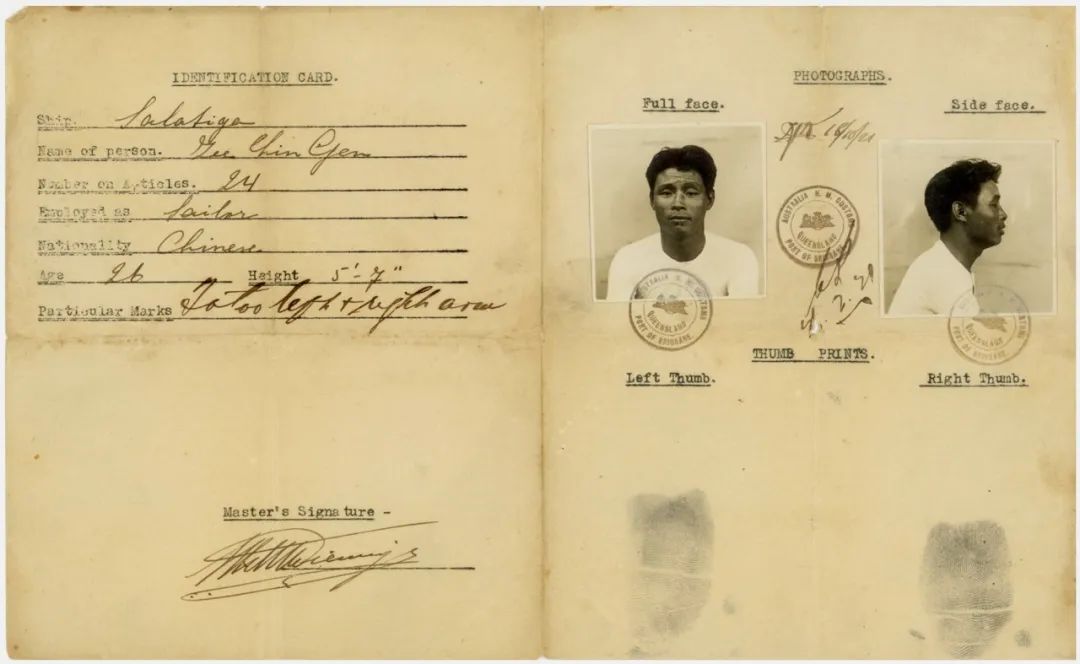 IDENTIFICATION CARD.
Ship. Salatiga
Name of person. Gee Chin Gen
Number on Articles. 24
Employed as Sailor
Nationality Chinese
Age 26 Height 5'-7"
Particular Marks Tatoo left & right arm
Master's Signature -
PHOTOGRAPHS.
Full face.
Side face.
AUSTRALIA H. M. CUSTOMS
QUEENSLAND
PORT OF BRISBANE
AUSTRALIA H. M. CUSTOMS
QUEENSLAND
PORT OF BRISBANE
QUEENSLAND
PORT OF BRISBANE
THUMB PRINTS.
Left Thumb.
Right Thumb.